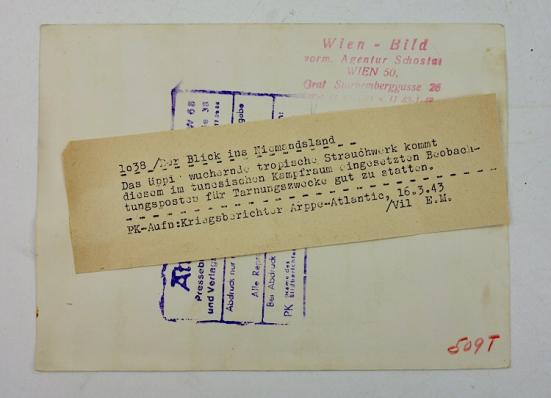 Wien - Bild
vorm. Agentur Schostal
WIEN 50,
Graf Starhemberggasse 26
1038/Der Blick ins Niemandsland
Das üppig wuchernde tropische Strauchwerk kommt
diesem im tunesischen Kampfraum eingesetzten Beobach-
tungsposten für Tarnungszwecke gut zu statten.
PK-Aufn:Kriegsberichter Arppe-Atlantic, 16.3.43
/Vil E.M.
W 68
Pressebi
und Verlags
Abdruck nur
Alle Repr
Bei Abdruck
PK
Bildberichter
509T